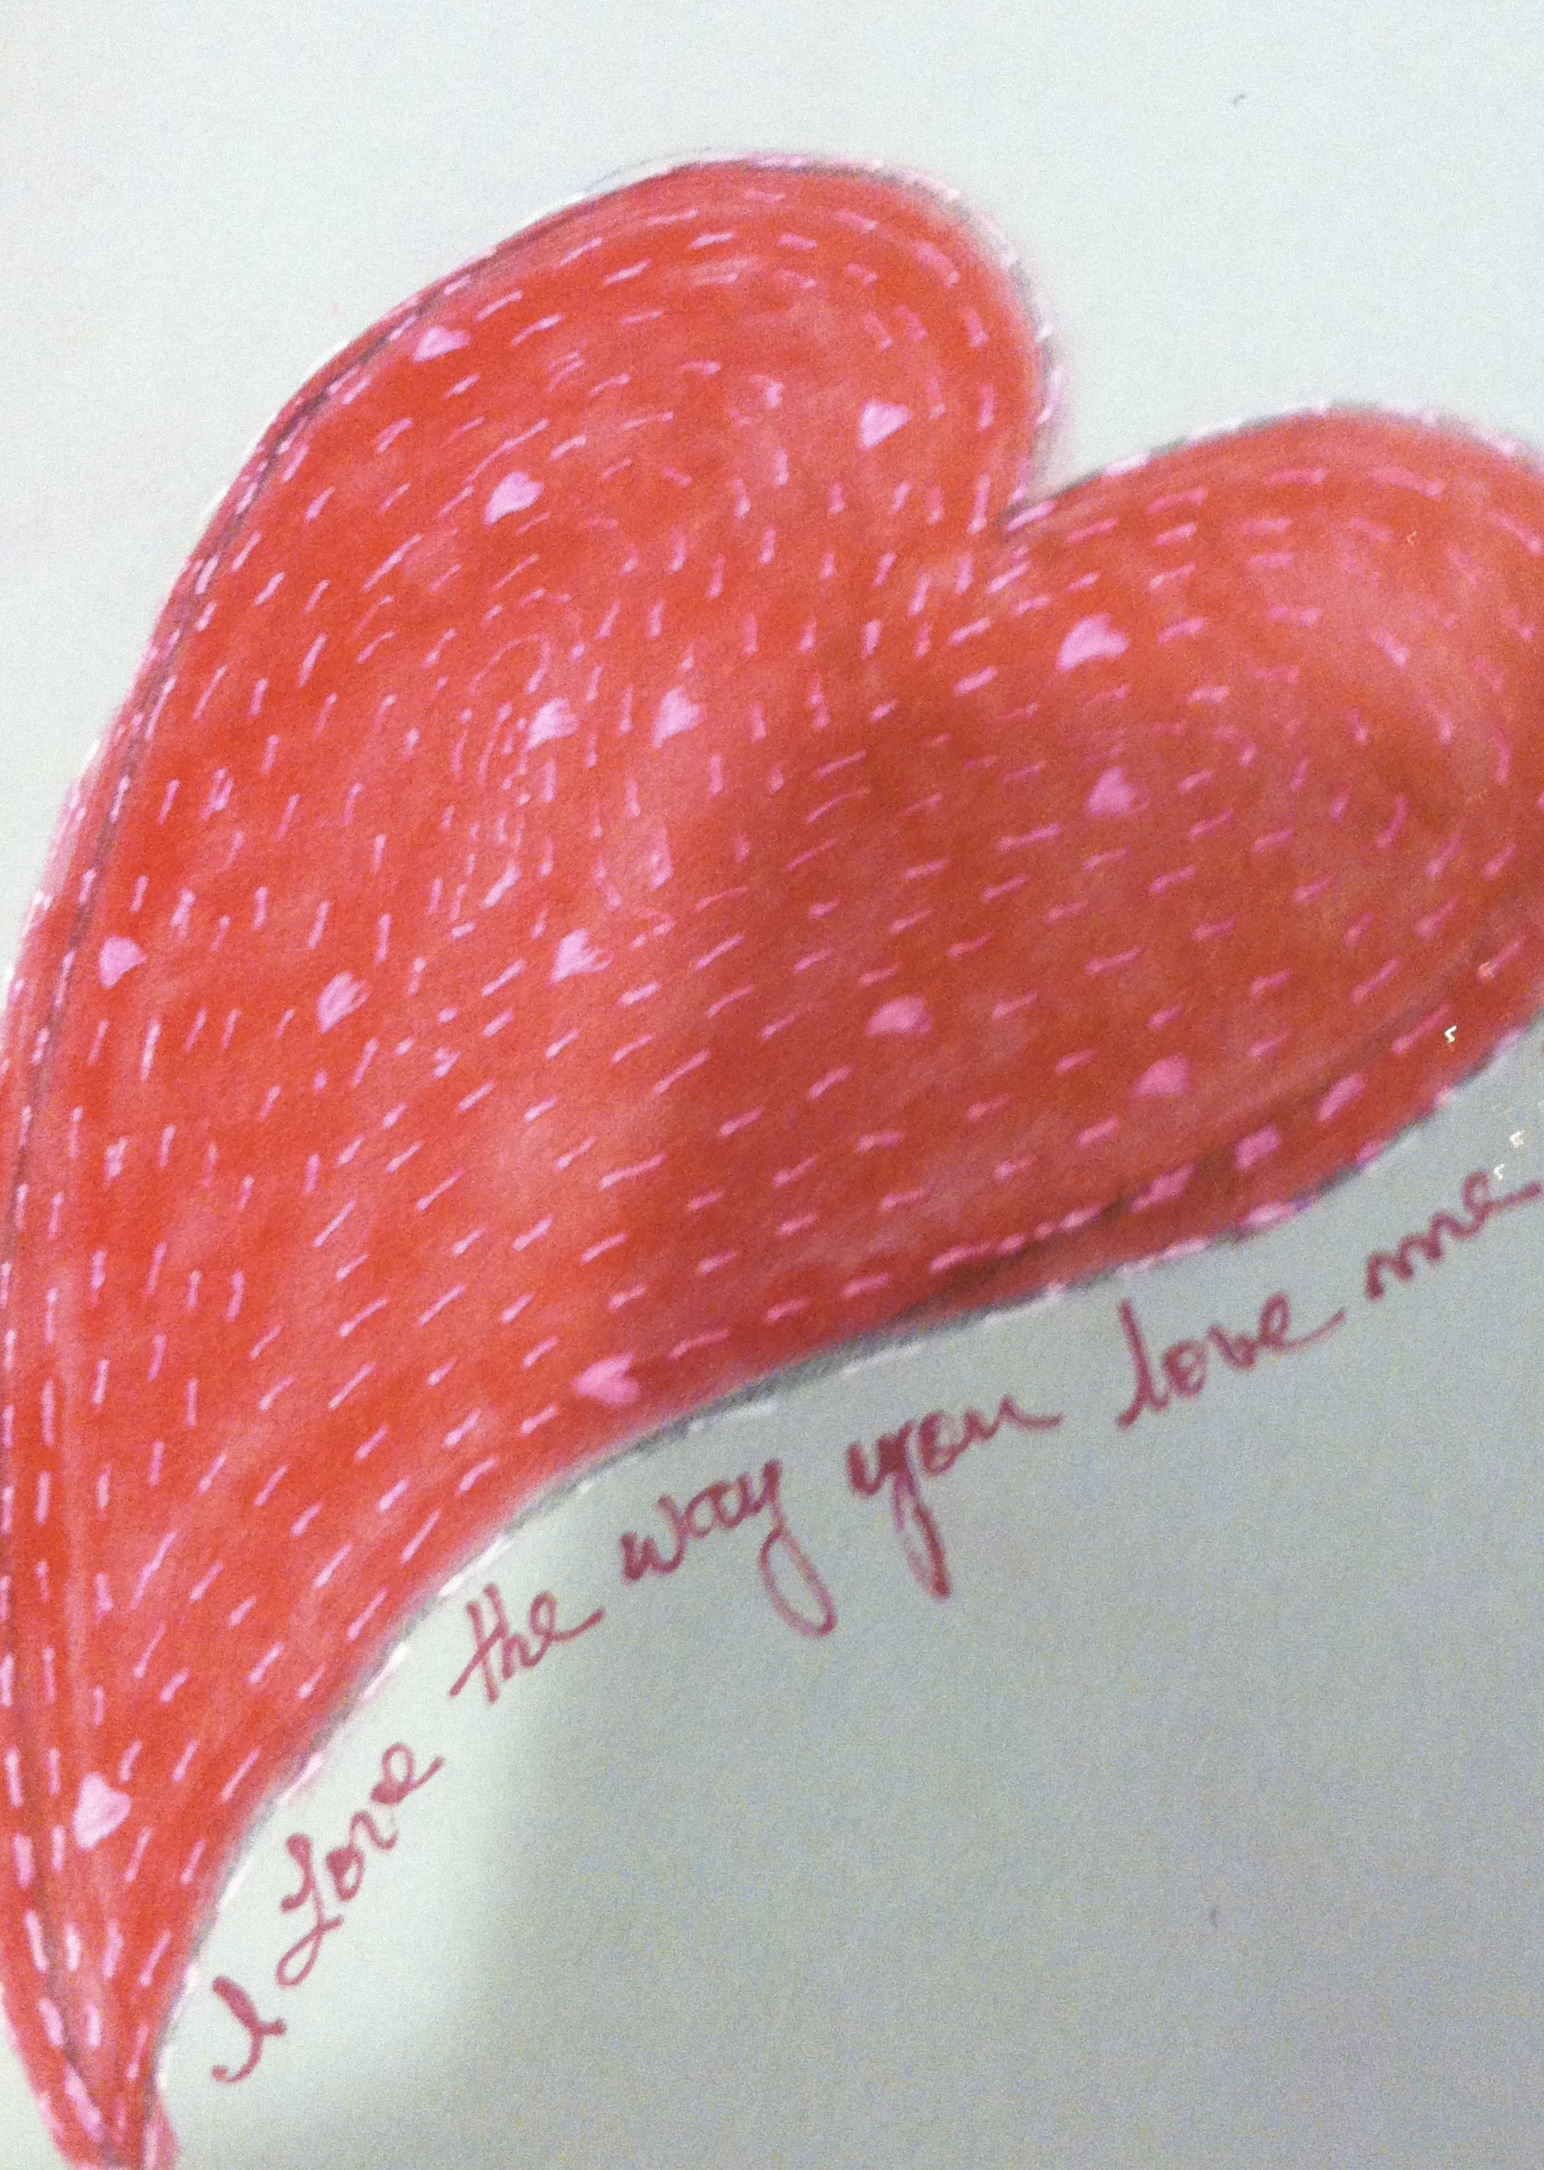 I Love the way you love me